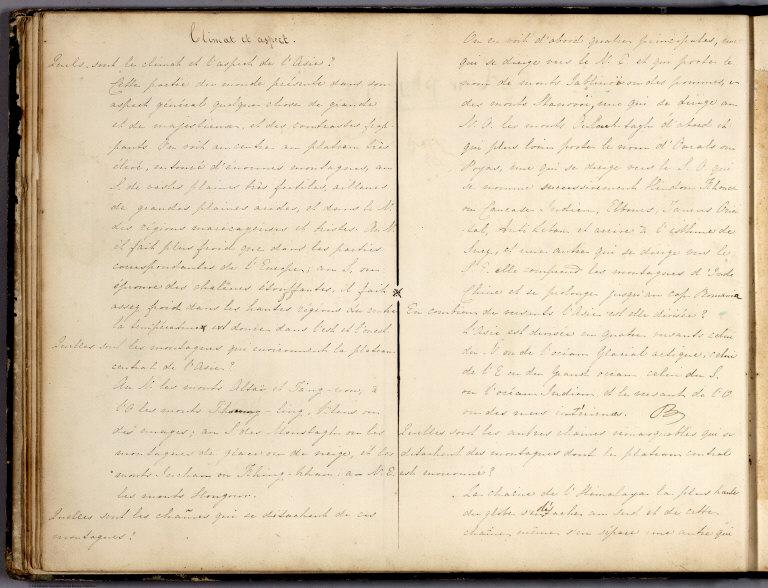 Climat et aspect.
Quels sont le climat et l'aspect de l'Asie?
Cette partie du monde présente dans son
aspect général quelque chose de grande
et de majestueux, et des contrastes frap-
pants. On voit au centre un plateau très
élevé, entouré d'énormes montagnes, au
S. de vastes plaines très fertiles, ailleurs
de grandes plaines arides, et dans le N.
des régions marécageuses et tristes. Au N.
il fait plus froid que dans les parties
correspondantes de l'Europe; au S. on
éprouve des chaleurs étouffantes, il fait
assez froid dans les hautes régions du centre
la température est douce dans l'est et l'ouest
Quelles sont les montagnes qui environnent le plateau
central de l'Asie?
Au N. les monts Altaï et Tang-nou, à
l'O les monts Thsoung-ling, Bleus ou
des nuages; au S. des Moustagh ou les
montagnes de glace ou de neige, et les
monts ou Khing-khan; au N. E.
les monts Kongour.
Quelles sont les chaînes qui se détachent de ces
montagnes?
On en voit d'abord quatre principales, une
qui se dirige vers le N. E et qui porte le
nom de monts Jablonoï ou des pommes, et
des monts Stanovoï, une qui se dirige au
N. O. les monts d'abord et
qui plus loin porte le nom d'Ourals ou
Poyas, une qui se dirige vers le S. O qui
se nomme successivement Hindou Khouch
ou Caucase Indien, Elbours, Taurus Orien-
tal, Anti Liban et arrive à l'isthme de
Suez, et une autre qui se dirige vers le
S. E. elle comprend les montagnes d'Indo
Chine et se prolonge jusqu'au cap Romania
En combien de versants l'Asie est elle divisée?
L'Asie est divisée en quatre versants celui
du N. ou de l'océan Glacial arctique, celui
de l'E ou du Grand océan, celui du S.
ou l'océan Indien et le versant de l'O
ou des mers intérieures.
Quelles sont les autres chaînes remarquables qui se
détachent des montagnes dont le plateau central
est environné?
La chaîne de l'Himalaya la plus haute
du globe s'en détache au sud et de cette
chaîne même s'en sépare une autre qui